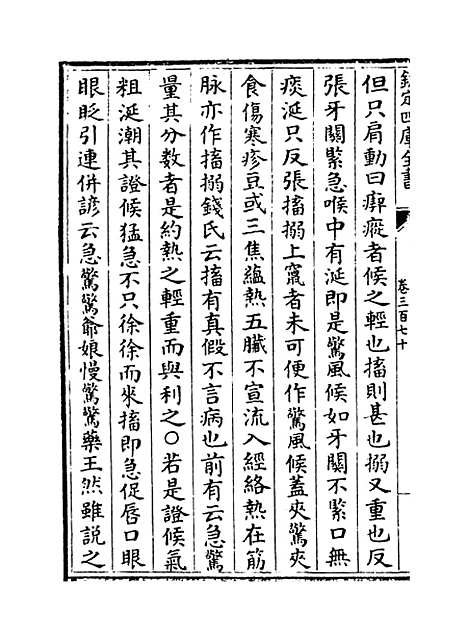 欽定四庫全書
卷三百七十
但只肩動曰瘈瘲者候之輕也搐則甚也搦又重也反
張牙關緊急喉中有涎即是驚風候如牙關不緊口無
痰涎只反張搐搦上竄者未可便作驚風候蓋夾驚夾
食傷寒疹豆或三焦蘊熱五臟不宣流入經絡熱在筋
脉亦作搐搦錢氏云搐有真假不言病也前有云急驚
量其分數者是約熱之輕重而與利之○若是證候氣
粗涎潮其證候猛急不只徐徐而來搐即急促唇口眼
眼眨引連併諺云急驚驚爺娘慢驚驚藥王然雖説之